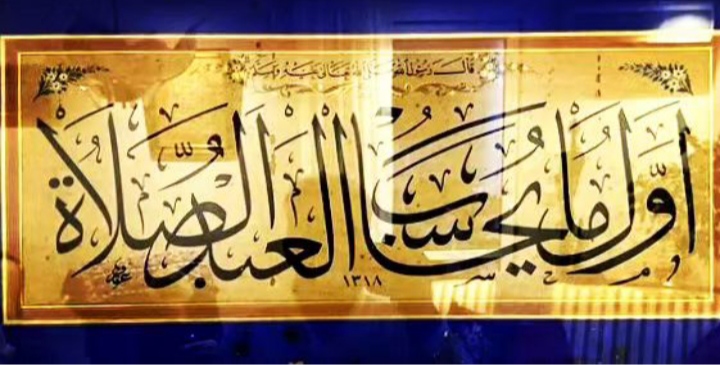 قال رسول الله صلى الله تعالى عليه وسلم
اول ما يحاسب العبد الصلاة
١٣١٨